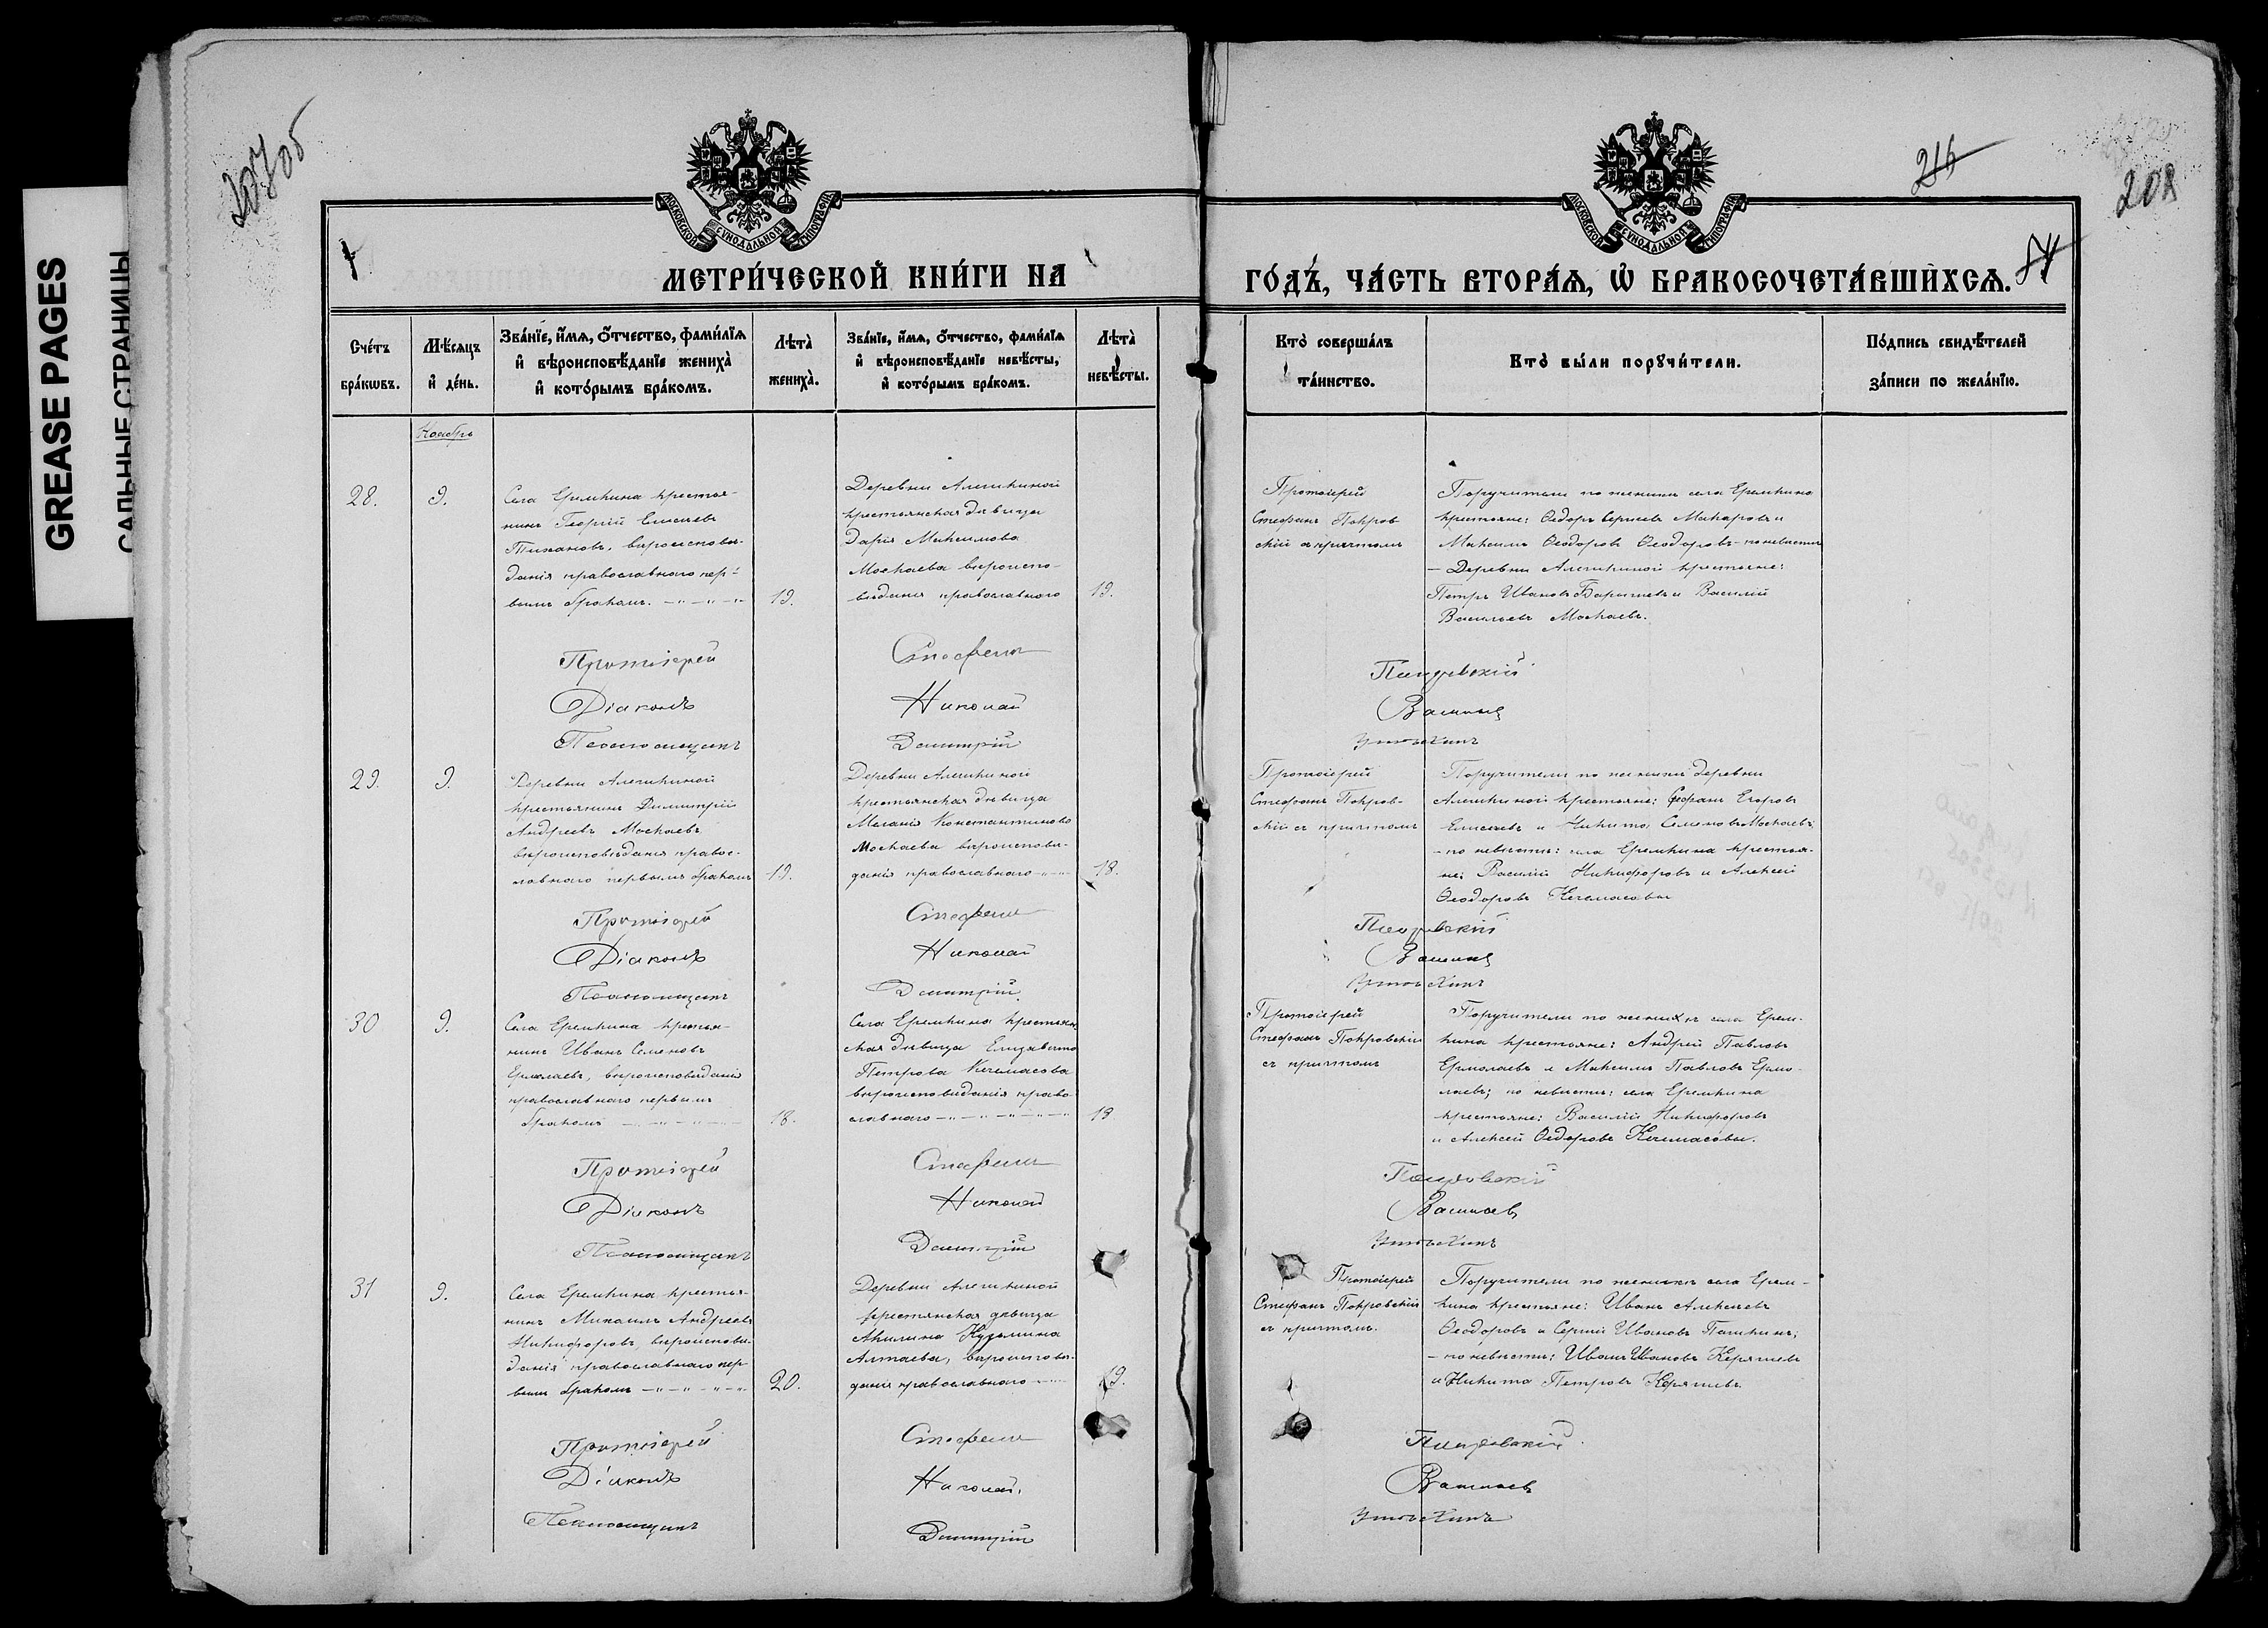 GREASE PAGES
САЛЬНЫЕ СТРАНИЦЫ
216
208
МОСКОВСКОЙ СѴНОДАЛЬНОЙ ТИПОГРАФІИ
МОСКОВСКОЙ СѴНОДАЛЬНОЙ ТИПОГРАФІИ
МЕТРИ́ЧЕСКОЙ КНИ́ГИ НА
ГО́ДЪ, ЧА́СТЬ ВТОРА́Ѧ, Ѽ БРАКОСОЧЕТА́ВШИХСѦ.
Сче́тъ бра́кѡвъ.
Мѣ́сяцъ и҆ де́нь.
Зва́нїе, и҆́мѧ, ѻ҆́тчество, фами́лїѧ
и҆ вѣроисповѣ́данїе жениха̀
и҆ кото́рымъ бра́комъ.
Лѣта̀ жениха̀.
Зва́нїе, и҆́мѧ, ѻ҆́тчество, фами́лїѧ
и҆ вѣроисповѣ́данїе невѣ́сты,
и҆ кото́рымъ бра́комъ.
Лѣта̀ невѣ́сты.
Кто̀ соверша́лъ та́инство.
Кто̀ бы́ли порꙋчи́тели.
По́дпись свидѣ́телей за́писи по жела́нїю.
Ноябрь
28.
9.
Села Еремкина крестья-
нинъ Георгій Елисеевъ
вѣроисповѣ-
данія православнаго пер-
вымъ бракомъ.
19.
Деревни Алешкиной
крестьянская дѣвица
Дарія Максимова
Москаева вѣроиспо-
вѣданія православнаго
19.
Протоіерей
Стефанъ Покров
скій съ причтомъ
Поручители по женихѣ села Еремкина
крестьяне: Ѳедоръ Сергѣевъ Макаровъ и
Максимъ Ѳеодоровъ Ѳеодоровъ - по невѣстѣ
- Деревни Алешкиной крестьяне:
Петръ Ивановъ Барышевъ и Василій
Васильевъ Москаевъ.
Протоіерей Стефанъ Покровскій
Діаконъ Николай Васильевъ
Псаломщикъ Димитрій
29.
9.
Деревни Алешкиной
крестьянинъ Димитрій
Андреевъ Москаевъ
вѣроисповѣданія правос-
лавнаго первымъ бракомъ
19.
Деревни Алешкиной
крестьянская дѣвица
Меланія Константинова
Москаева вѣроисповѣ-
данія православнаго
18.
Протоіерей
Стефанъ Покров-
скій съ причтомъ
Поручители по женихѣ деревни
Алешкиной крестьяне: Стефанъ Егоровъ
Елисеевъ и Никита Семеновъ Москаевъ;
- по невѣстѣ: села Еремкина крестья-
не: Василій Никифоровъ и Алексѣй
Ѳеодоровъ Кечемасовы
Протоіерей Стефанъ Покровскій
Діаконъ Николай Васильевъ
Псаломщикъ Димитрій
30
9.
Села Еремкина крестья-
нинъ Иванъ Семеновъ
Ермолаевъ, вѣроисповѣданія
православнаго первымъ
бракомъ
18.
Села Еремкина крестьян
ская дѣвица Елизавета
Петрова Кечемасова
вѣроисповѣданія право
славнаго
18
Протоіерей
Стефанъ Покровскій
съ причтомъ
Поручители по женихѣ села Ерем-
кина крестьяне: Андрей Павловъ
Ермолаевъ и Максимъ Павловъ Ермо-
лаевъ; по невѣстѣ: села Еремкина
крестьяне: Василій Никифоровъ
и Алексѣй Ѳедоровъ Кечемасовы.
Протоіерей Стефанъ Покровскій
Діаконъ Николай Васильевъ
Псаломщикъ Димитрій
31
9.
Села Еремкина крестья-
нинъ Михаилъ Андреевъ
Никифоровъ, вѣроисповѣ-
данія православнаго пер
вымъ бракомъ
20.
Деревни Алешкиной
крестьянская дѣвица
Акилина Кузьмина
Алтаева, вѣроисповѣ-
данія православнаго
19.
Протоіерей
Стефанъ Покровскій
съ причтомъ.
Поручители по женихѣ села Ерем-
кина крестьяне: Иванъ Алексѣевъ
Ѳеодоровъ и Сергій Ивановъ Пашкинъ;
- по невѣстѣ: Иванъ Ивановъ Керяшевъ
и Никита Петровъ Керяшевъ
Протоіерей Стефанъ Покровскій
Діаконъ Николай Васильевъ
Псаломщикъ Димитрій